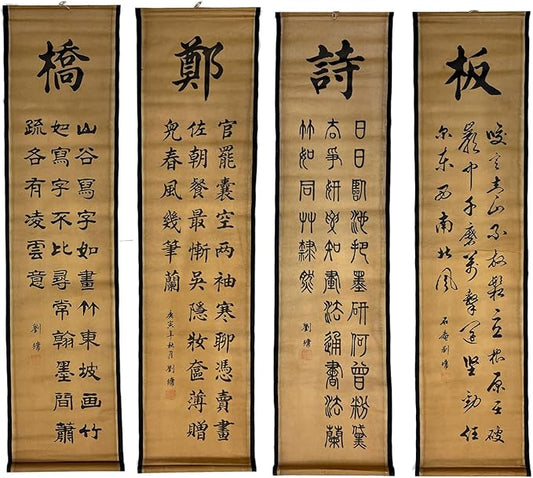 板
咬定青山不放鬆立根原在破
巖中千磨萬擊還堅勁任
尔东西南北風
石庵劉墉
詩
日日臨池把墨研何曾粉黛
去爭妍要知畫法通書法蘭
竹如同艸隸然
劉墉
鄭
官罷囊空两袖寒聊憑賣畫
佐朝餐最慚吳隱妝奩薄贈
兒春風幾筆蘭
庚寅年秋月劉墉
橋
山谷寫字如畫竹東坡画竹
如寫字不比尋常翰墨間蕭
疏各有凌雲意
劉墉